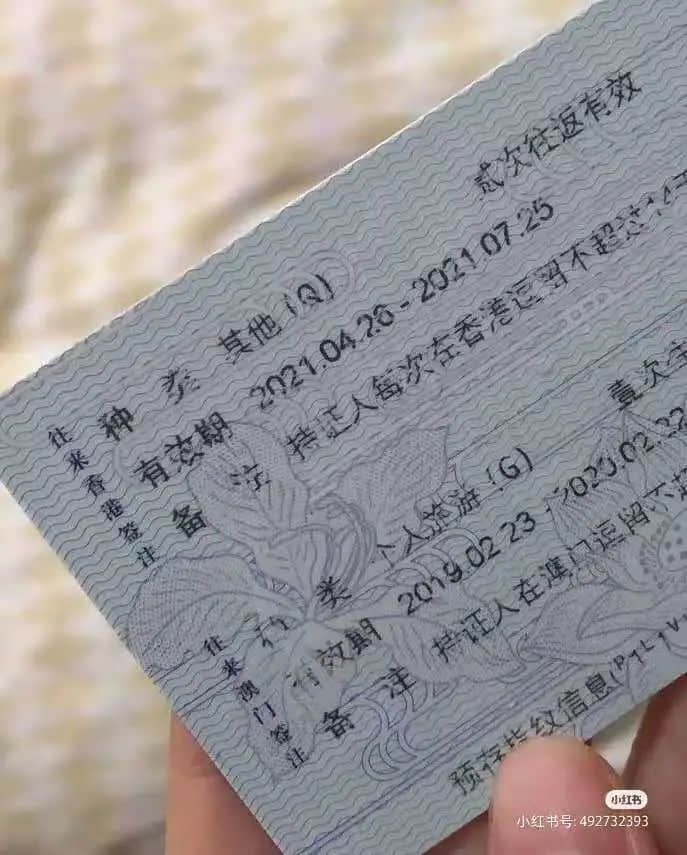 往来香港签注
贰次往返有效
种 类 其他 (Q)
有效期 2021.04.26-2021.07.25
备 注 持证人每次在香港逗留不超过14天
往来澳门签注
壹次
种 类 个人旅游 (G)
有效期 2019.02.23-2020.02.22
备 注 持证人在澳门逗留不超
预存指纹信息(P1L1V
小红书
小红书号: 492732393